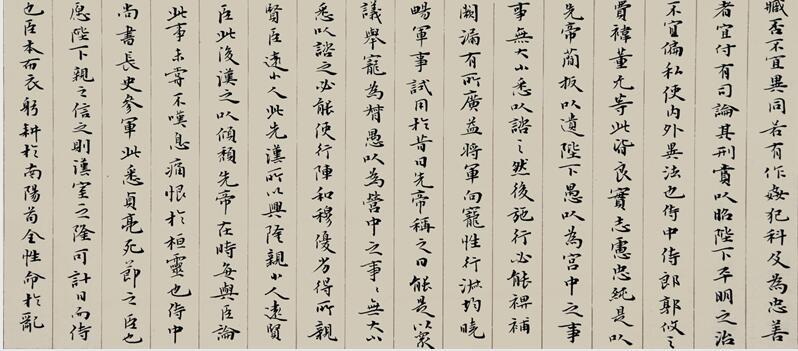 臧否不宜異同若有作姦犯科及為忠善
者宜付有司論其刑賞以昭陛下平明之治
不宜偏私使內外異法也侍中侍郎郭攸之
費禕董允等此皆良實志慮忠純是以
先帝簡拔以遺陛下愚以為宮中之事
事無大小悉以諮之然後施行必能裨補
闕漏有所廣益將軍向寵性行淑均曉
暢軍事試用於昔日先帝稱之曰能是以眾
議舉寵為督愚以為營中之事〻無大小
悉以諮之必能使行陣和穆優劣得所親
賢臣遠小人此先漢所以興隆親小人遠賢
臣此後漢之以傾頹先帝在時每與臣論
此事未嘗不嘆息痛恨於桓靈也侍中
尚書長史參軍此悉貞亮死節之臣也
愿陛下親之信之則漢室之隆可計日而待
也臣本布衣躬耕於南陽苟全性命於亂